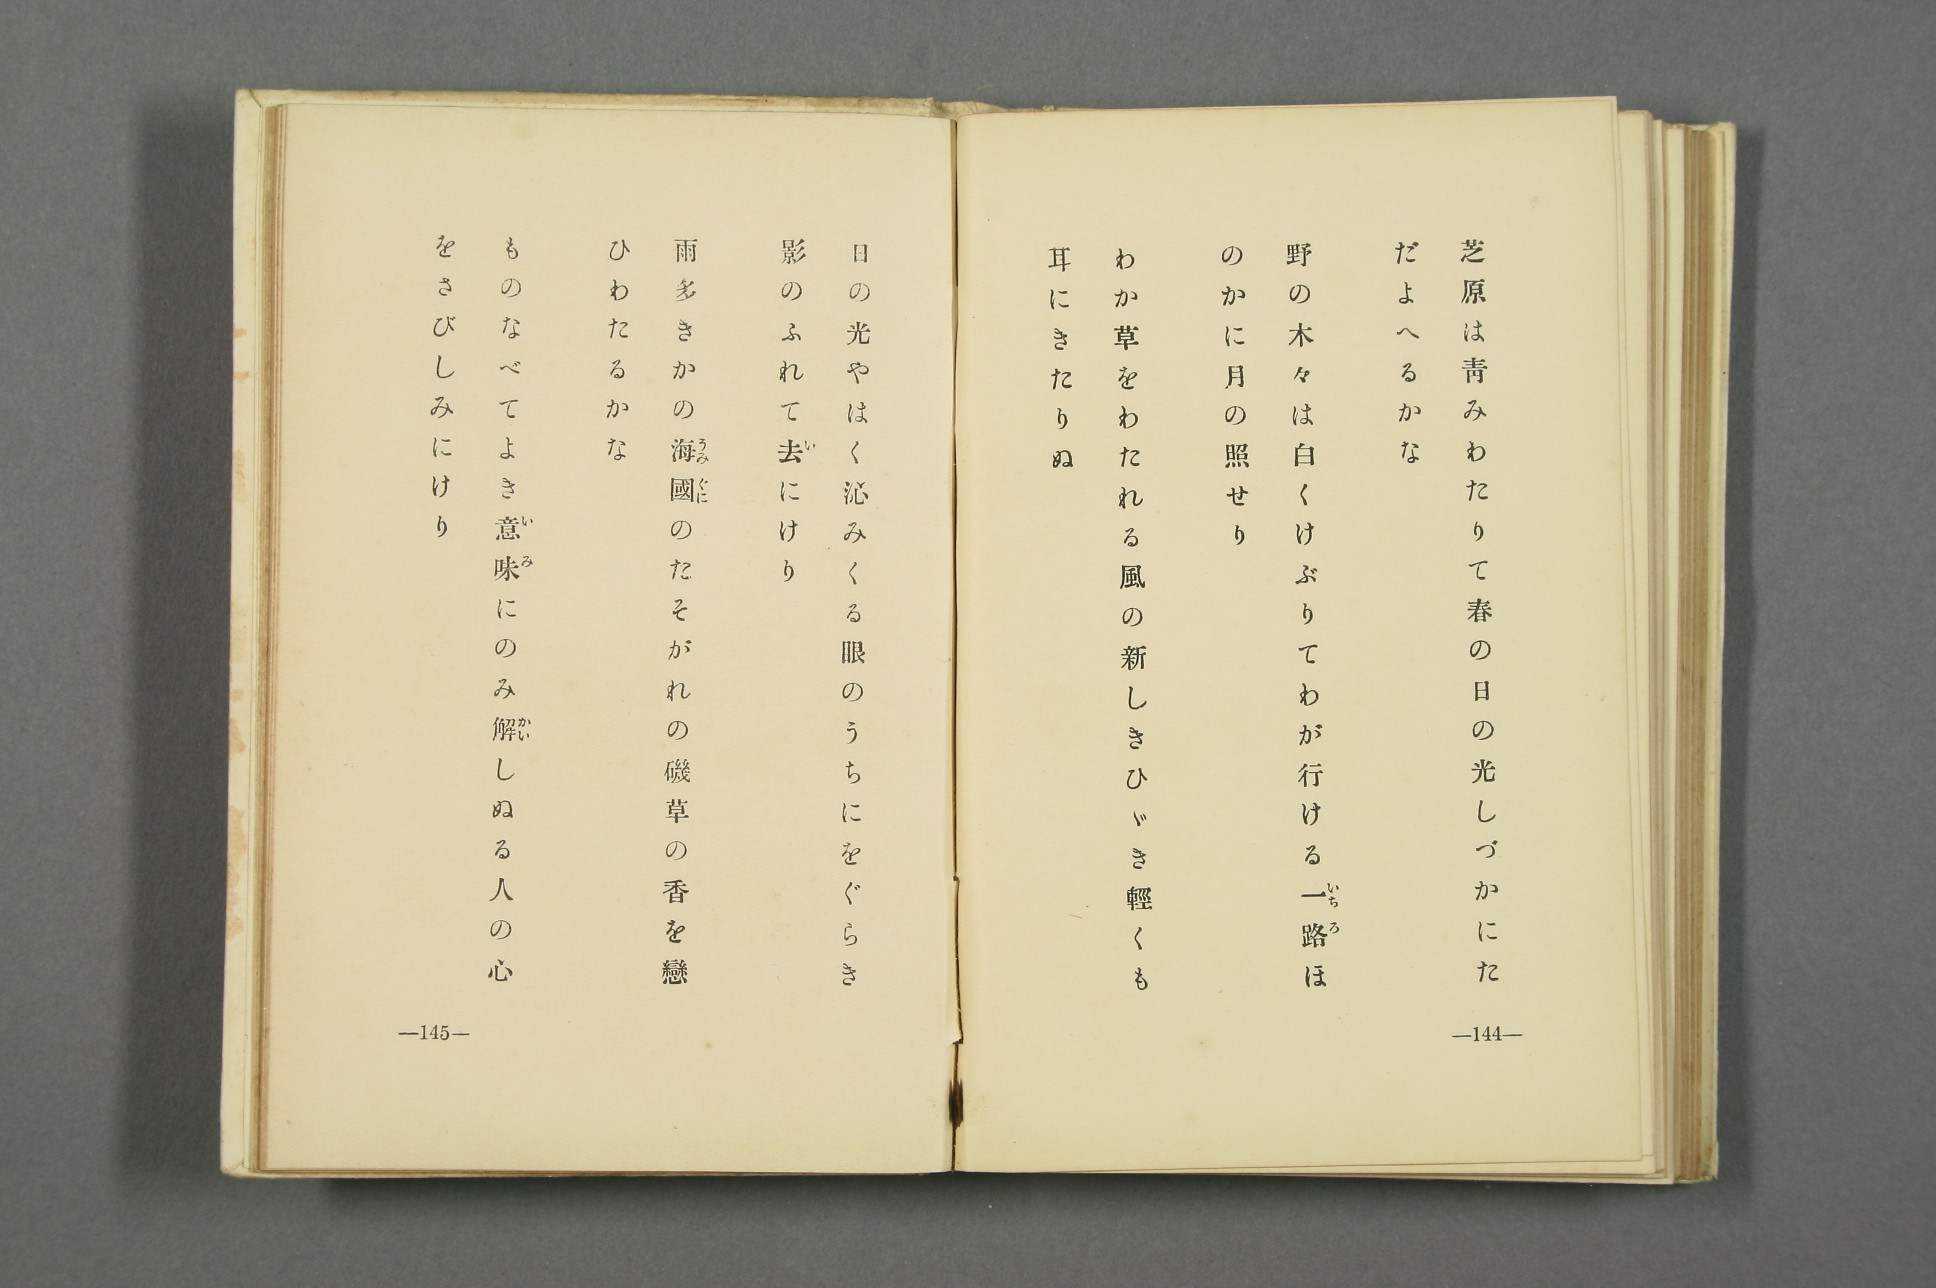 芝原は靑みわたりて春の日の光しづかにた
だよへるかな
野の木々は白くけぶりてわが行ける一路ほ
のかに月の照せり
わか草をわたれる風の新しきひゞき輕くも
耳にきたりぬ
—144—
日の光やはく沁みくる眼のうちにをぐらき
影のふれて去にけり
雨多きかの海國のたそがれの磯草の香を戀
ひわたるかな
ものなべてよき意味にのみ解しぬる人の心
をさびしみにけり
—145—